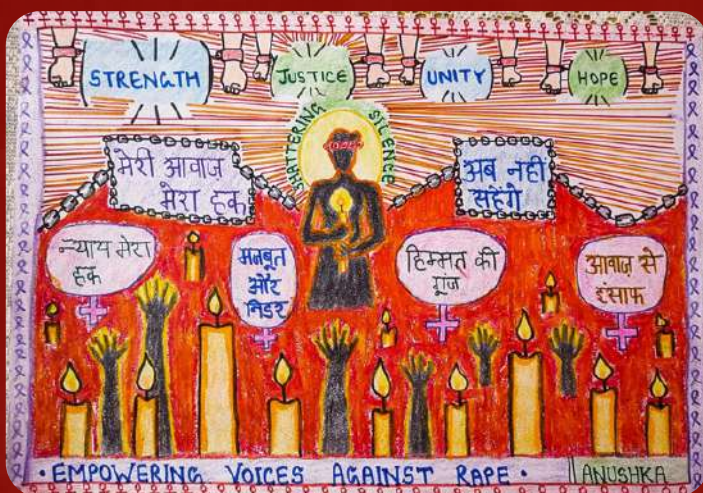 STRENGTH
JUSTICE
UNITY
HOPE
SHATTERING SILENCE
मेरी आवाज़
मेरा हक
अब नही
सहेंगे
न्याय मेरा
हक
मजबूत
और
निडर
हिम्मत की
गूंज
आवाज़ से
इंसाफ
• EMPOWERING VOICES AGAINST RAPE •
ANUSHKA